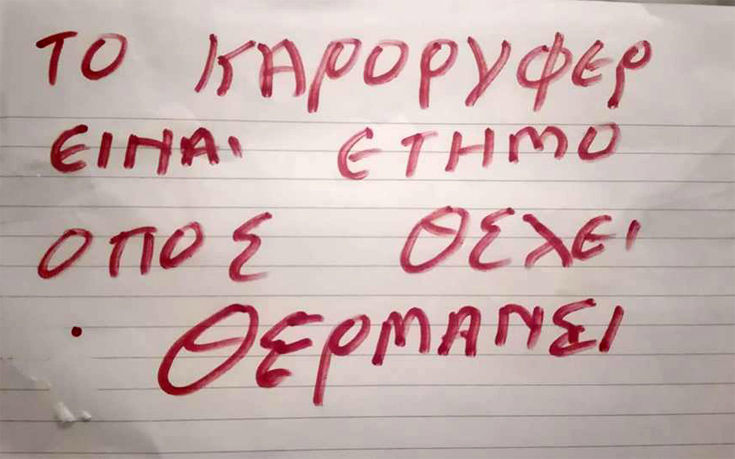 ΤΟ ΚΑΡΟΡΥΦΕΡ
ΕΙΝΑΙ ΕΤΗΜΟ
ΟΠΟΣ ΘΕΛΕΙ
. ΘΕΡΜΑΝΣΙ